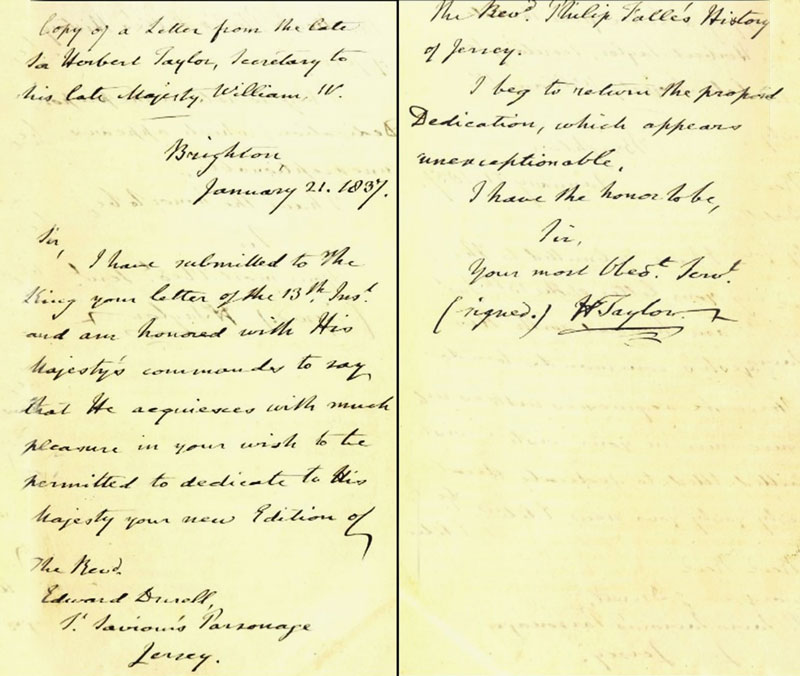 Copy of a Letter from the late
Sir Herbert Taylor, Secretary to
his late Majesty, William, IV.
Brighton,
January 21. 1837.
Sir,
I have submitted to The
King your letter of the 13th. Inst.
and am honored with His
Majesty's commands to say
that He acquiesces with much
pleasure in your wish to be
permitted to dedicate to His
Majesty your new Edition of
The Revd.
Edward Durell,
St Saviour's Parsonage
Jersey.
The Revd. Philip Falle's History
of Jersey.
I beg to return the proposed
Dedication, which appears
unexceptionable.
I have the honor to be,
Sir,
Your most Obedt. Servt.
(signed.) H Taylor